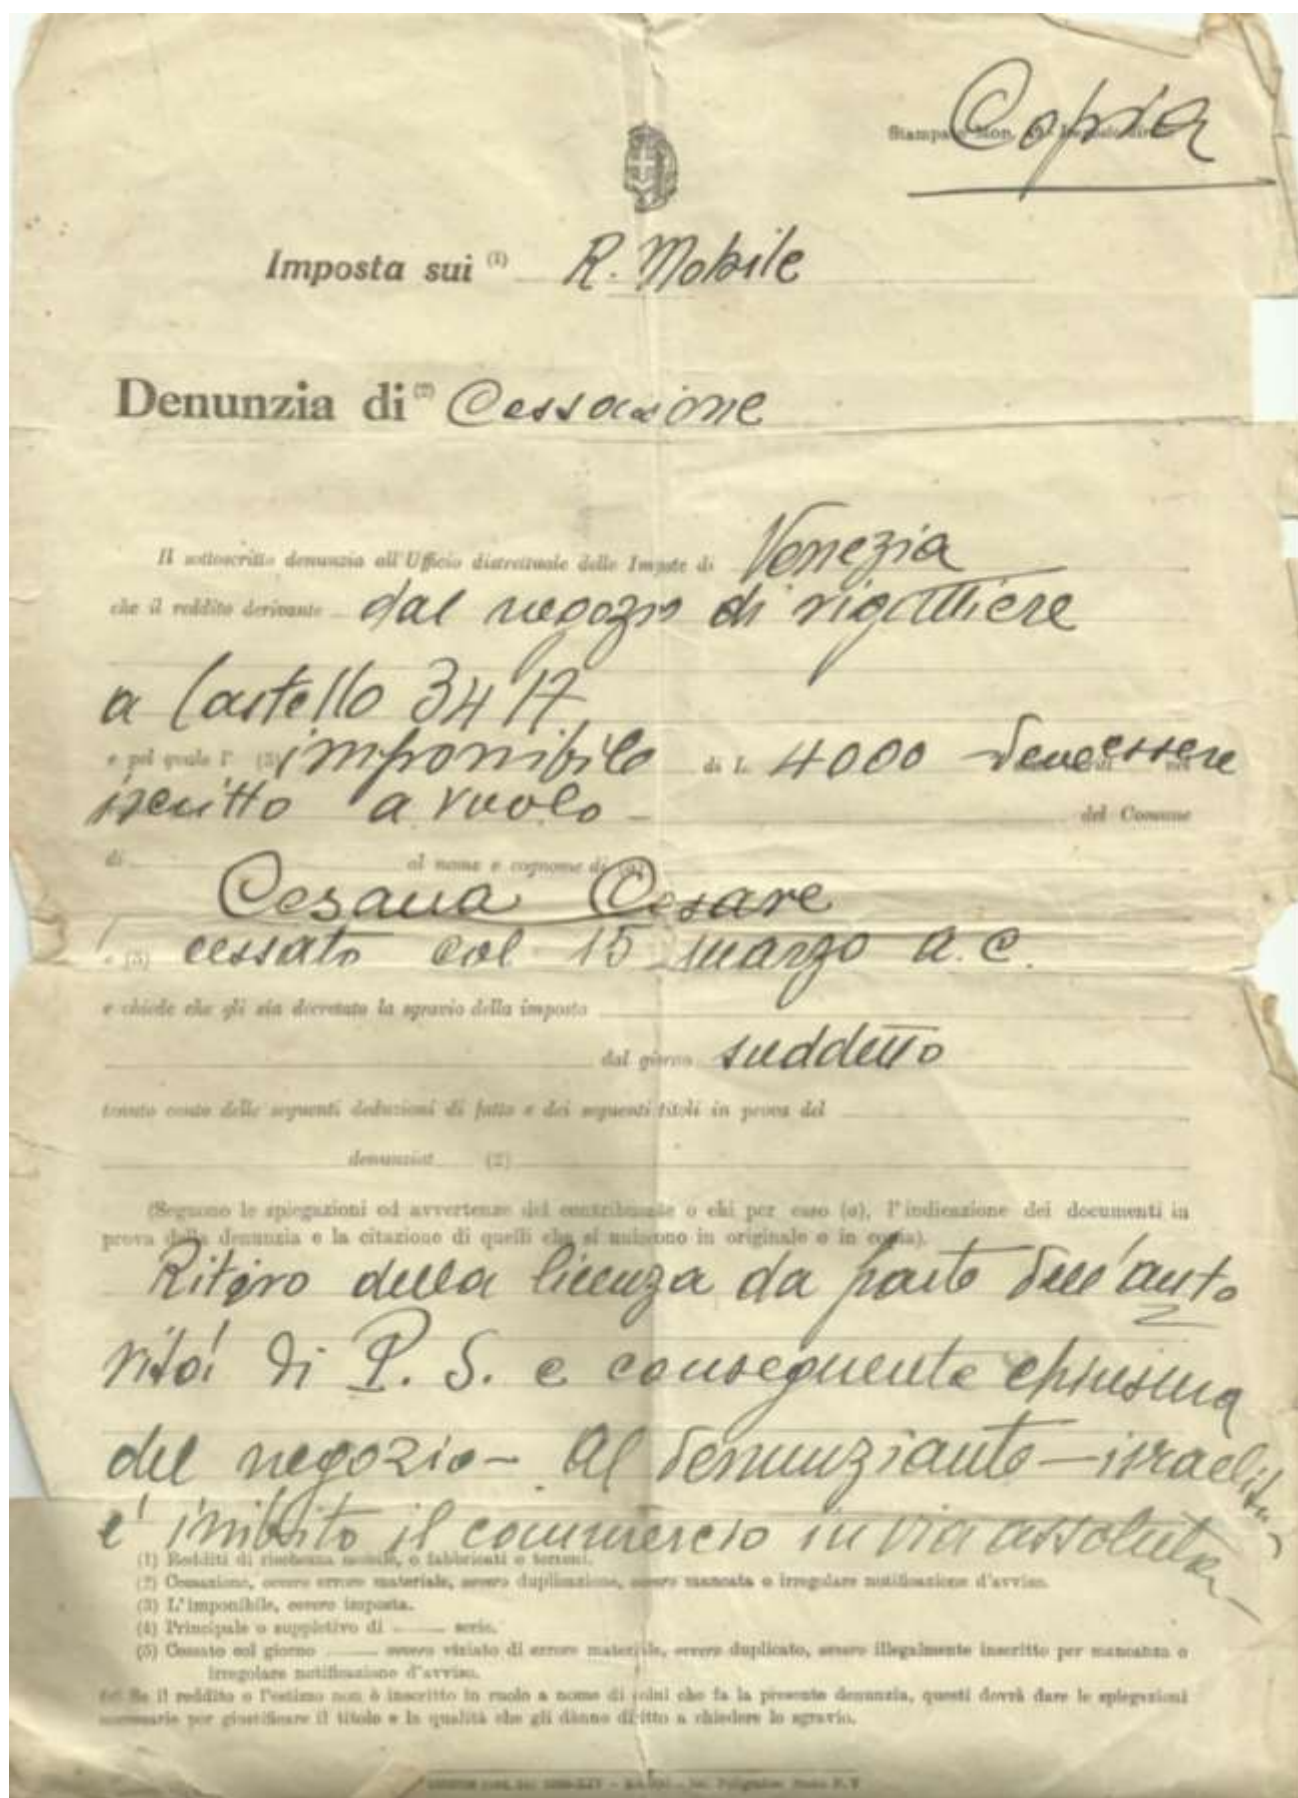 Copia
Imposta sui (1) R. Mobile
Denunzia di (2) Cessazione
Il sottoscritto denunzia all'Ufficio distrettuale delle Imposte di Venezia
che il reddito derivante dal negozio di rigattiere
a Castello 3417
e pel quale l' (3) imponibile di L. 4000 deve essere
iscritto a ruolo del Comune
di al nome e cognome di
Cesana Cesare
è (5) cessato col 15 marzo a. c.
e chiede che gli sia decretato lo sgravio della imposta
dal giorno suddetto
tenuto conto delle seguenti deduzioni di fatto e dei seguenti titoli in prova del
denunziat (2)
(Seguono le spiegazioni od avvertenze del contribuente o chi per esso (a), l'indicazione dei documenti in
prova della denunzia e la citazione di quelli che si uniscono in originale o in copia).
Ritiro della licenza da parte dell'auto
rità di P. S. e conseguente chiusura
del negozio - Al denunziante - israelita -
e' inibito il commercio in via assoluta -
(1) Redditi di ricchezza mobile, o fabbricati o terreni.
(2) Cessazione, ovvero errore materiale, ovvero duplicazione, ovvero mancata o irregolare notificazione d'avviso.
(3) L'imponibile, ovvero imposta.
(4) Principale o suppletivo di serie.
(5) Cessato col giorno ovvero viziato di errore materiale, ovvero duplicato, ovvero illegalmente inscritto per mancanza o
irregolare notificazione d'avviso.
(a) Se il reddito o l'estimo non è inscritto in ruolo a nome di colui che fa la presente denunzia, questi dovrà dare le spiegazioni
necessarie per giustificare il titolo e la qualità che gli dànno diritto a chiedere lo sgravio.